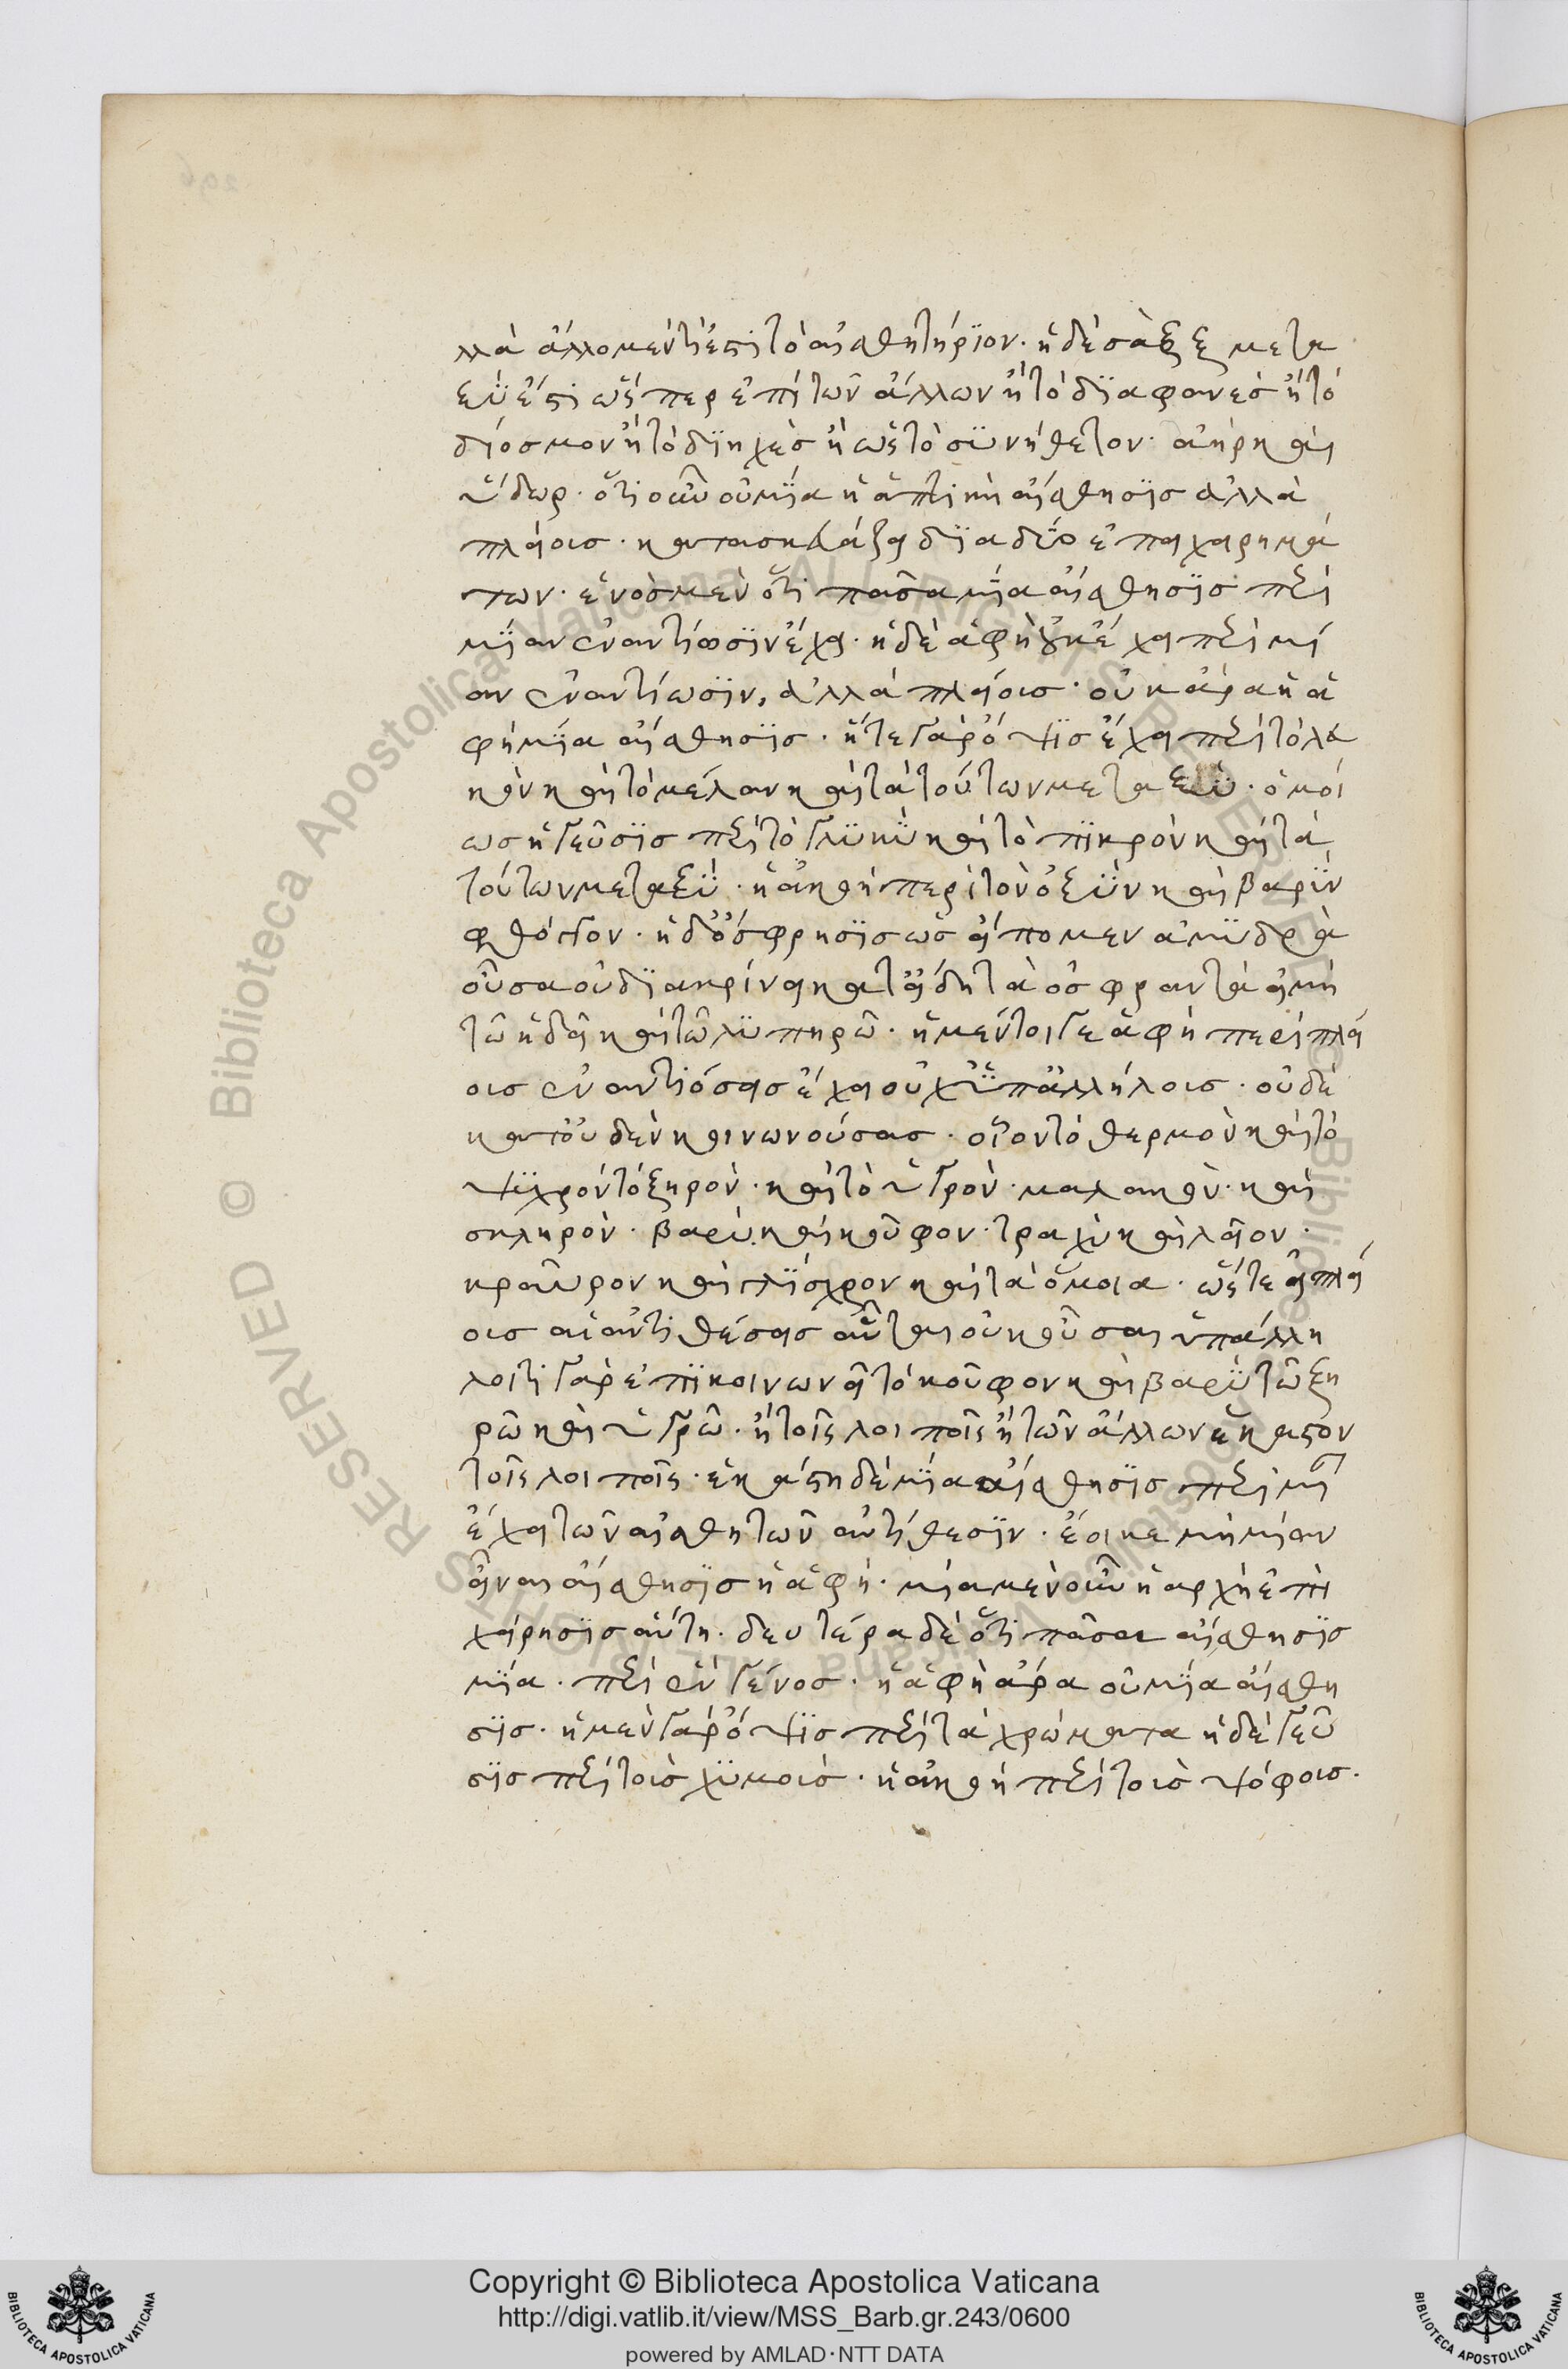 λλὰ ἄλλο μέν τί ἐστι τὸ αἰσθητήριον· ἡ δὲ σὰρξ μετα
ξύ ἐστι ὥσπερ ἐπὶ τῶν ἄλλων ἢ τὸ διαφανὲς ἢ τὸ
δίοσμον ἢ τὸ διηχὲς ἢ ὡς τὸ σϋνήθετον· ἀὴρ ἢ καὶ
ὕδωρ· ὅτι οὖν οὐ μία ἡ ἁπτικὴ αἴσθησις ἀλλὰ
πλείους· κατασκευάζει διὰ δύο ἐπιχειρημά
των· ἑνὸς μὲν ὅτι πᾶσα μία αἴσθησις περὶ
μίαν ἐναντίωσιν ἔχει· ἡ δὲ ἁφὴ οὐκ ἔχει περὶ μί
αν ἐναντίωσιν, ἀλλὰ πλείους· οὐκ ἄρα ἡ ἁ
φὴ μία αἴσθησις· ἥ τε γὰρ ὄψις ἔχει περὶ τὸ λευ
κὸν καὶ τὸ μέλαν καὶ τὰ τούτων μεταξύ· ὁμοί
ως ἡ γεῦσις περὶ τὸ γλυκὺ καὶ τὸ πικρὸν καὶ τὰ
τούτων μεταξύ· ἡ ἀκοὴ περὶ τὸν ὀξὺν καὶ βαρὺν
φθόγγον· ἡ δ' ὄσφρησις ὡς εἴπομεν ἀμυδρὰ
οὖσα οὐ διακρίνει κατ' εἴδη τὰ ὀσφραντὰ εἰ μὴ
τῶ ἡδεῖ καὶ τῶ λυπηρῶ· ἡ μέντοι γε ἁφὴ περὶ πλεί
ους ἐναντιώσεις ἔχει οὐχ ὑπαλλήλους· οὐδὲ
κατ' οὐδὲν κοινωνούσας· οἷον τὸ θερμὸν καὶ τὸ
ψυχρόν τὸ ξηρὸν· καὶ τὸ ὑγρὸν· μαλακὸν· καὶ
σκληρὸν· βαρὺ καὶ κοῦφον· τραχὺ καὶ λεῖον·
κραῦρον καὶ γλίσχρον καὶ τὰ ὅμοια· ὥστε εἰ πλεί
ους αἱ ἀντιθέσεις αὗται οὐκ οὖσαι ὑπάλλη
λοι τί γὰρ ἐπικοινωνεῖ τὸ κοῦφον καὶ βαρὺ τῶ ξη
ρῶ καὶ ὑγρῶ· ἢ τοῖς λοιποῖς ἢ τῶν ἄλλων ἕκαστον
τοῖς λοιποῖς· ἑκάστη δὲ μία αἴσθησις περὶ μίαν
ἔχει τῶν αἰσθητῶν ἀντίθεσιν· ἔοικε μὴ μίαν
εἶναι αἴσθησις ἡ ἁφή· μία μὲν οὖν ἡ ἀρχὴ ἐπι
χείρησις αὕτη· δευτέρα δὲ ὅτι πᾶσα αἴσθησις
μία· περὶ ἓν γένος· ἡ ἁφὴ ἄρα οὐ μία αἴσθη
σις· ἡ μὲν γὰρ ὄψις περὶ τὰ χρώματα ἡ δὲ γεῦ
σις περὶ τοὺς χυμούς· ἡ ἀκοὴ περὶ τοὺς ψόφους.
Copyright © Biblioteca Apostolica Vaticana
http://digi.vatlib.it/view/MSS_Barb.gr.243/0600
powered by AMLAD·NTT DATA